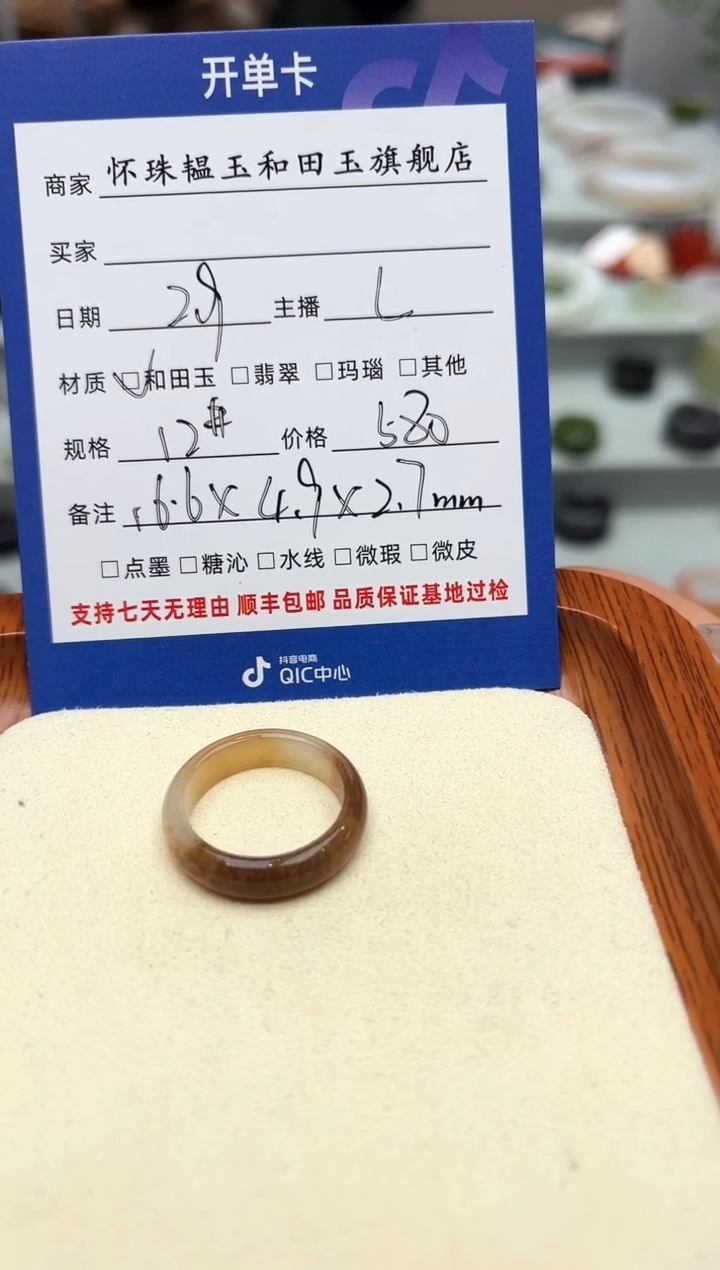 开单卡
商家 怀珠韫玉和田玉旗舰店
买家
日期 29 主播 L
材质 ☑和田玉 □翡翠 □玛瑙 □其他
规格 12# 价格 580
备注 16.6×4.9×2.7mm
□点墨 □糖沁 □水线 □微瑕 □微皮
支持七天无理由 顺丰包邮 品质保证基地过检
抖音电商
QIC中心